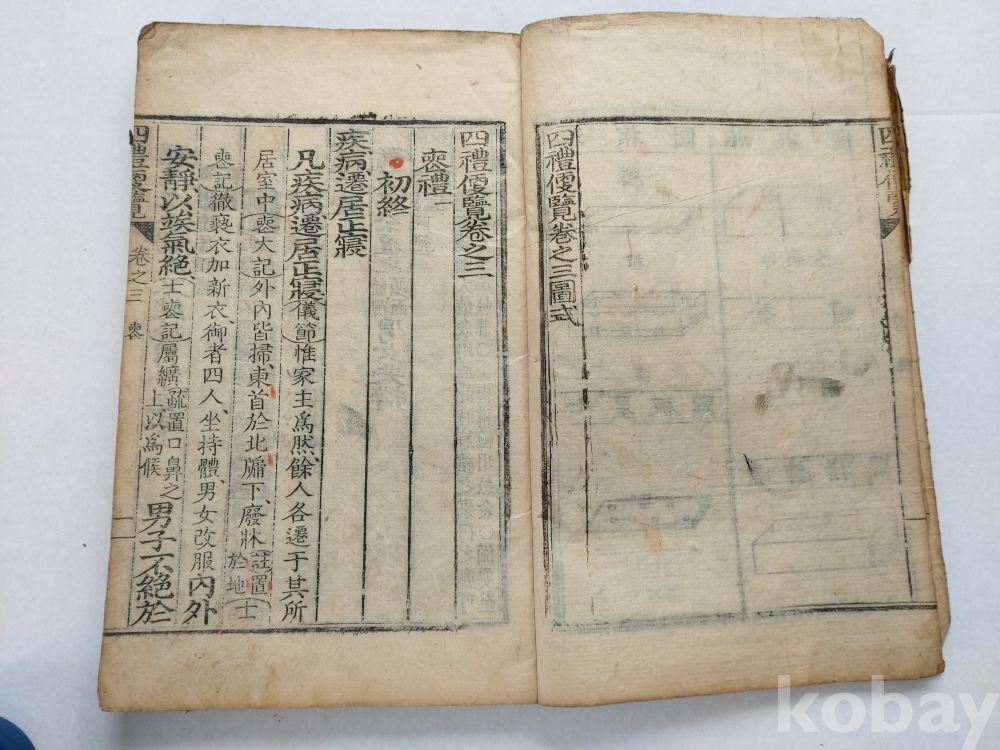 四禮便覽卷之三圖式
四禮便覽卷之三
喪禮一
初終
疾病遷居正寢
凡疾病遷居正寢儀節惟家主爲然餘人各遷于其所
居室中喪大記外內皆掃東首於北牖下廢牀註置於地士
喪記徹褻衣加新衣御者四人坐持體男女改服內外
安靜以竢氣絶士喪記屬纊疏置口鼻之上以爲候男子不絶於
四禮便覽 卷之三 喪 一
kobay